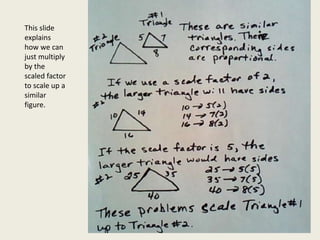 This slide
explains
how we can
just multiply
by the
scaled factor
to scale up a
similar
figure.
#1
Triangle
#2
Triangle
5 7
8
These are similar
triangles. Their
corresponding sides
are proportional.
If we use a scale factor of 2,
the larger triangle will have sides
#2
10 14
16
10 → 5(2)
14 → 7(2)
16 → 8(2)
If the scale factor is 5, the
larger triangle would have sides
#2 25 35
40
25 → 5(5)
35 → 7(5)
40 → 8(5)
These problems scale Triangle #1
up to Triangle #2.